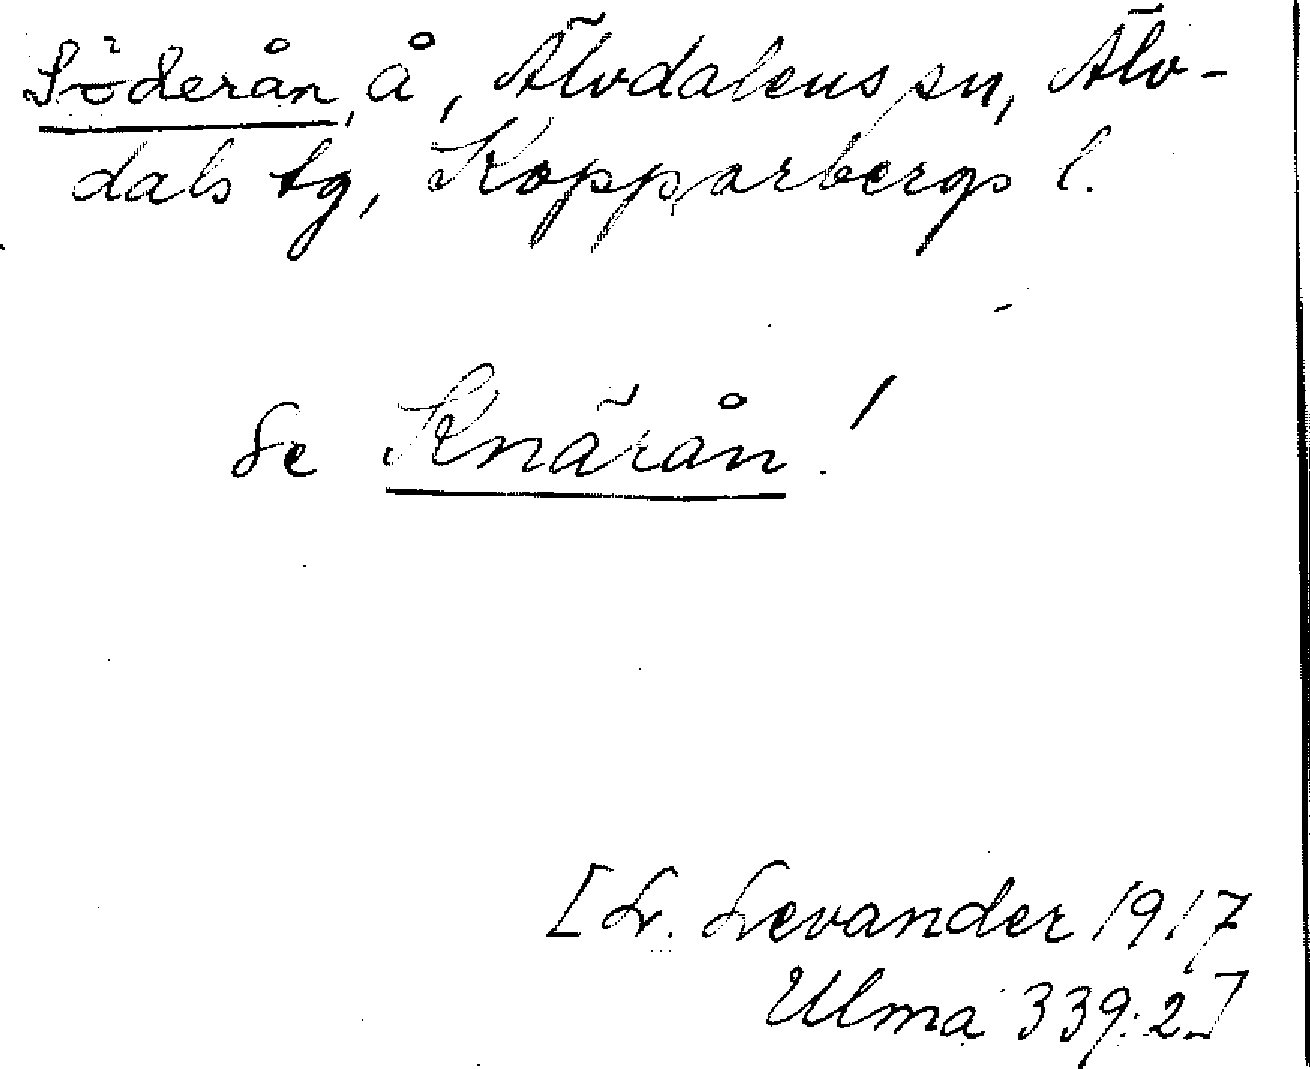 Söderån, å, Älvdalens sn, Älv-
dals tg, Kopparbergs l.
Se Knärån!
[L. Levander 1917
Ulma 339:2]